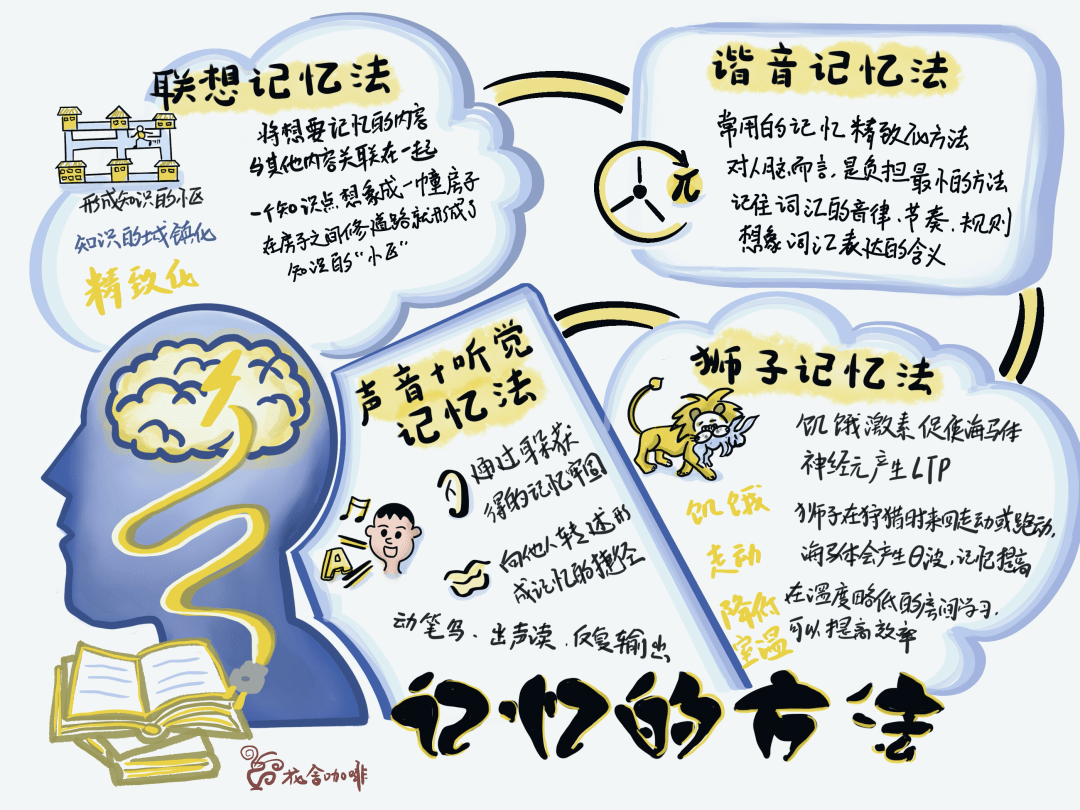 联想记忆法
将想要记忆的内容
与其他内容关联在一起
一个知识点想象成一幢房子
在房子之间修道路就形成了
知识的“小区”
形成知识的小区
知识的城镇化
精致化
谐音记忆法
常用的记忆精致化方法
对人脑而言,是负担最小的方法
记住词汇的音律、节奏、规则
想象词汇表达的含义
元
声音+听觉
记忆法
通过耳朵获
得的记忆牢固
向他人转述形
成记忆的捷径
动笔写、出声读、反复输出
A
狮子记忆法
饥饿激素促使海马体
神经元产生LTP
狮子在狩猎时来回走动或跑动,
海马体会产生θ波,记忆提高
在温度略低的房间学习,
可以提高效率
饥饿
走动
降低
室温
记忆的方法
花舍咖啡